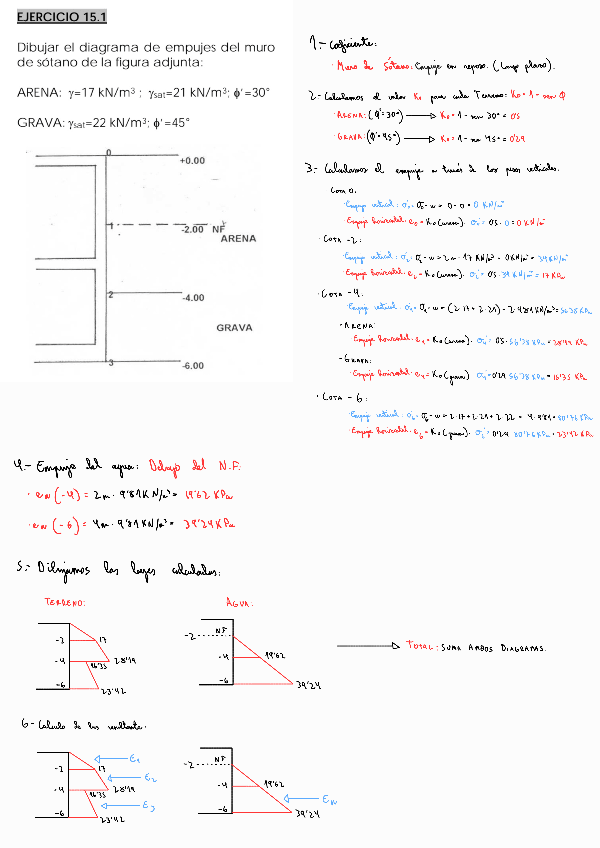 EJERCICIO 15.1
Dibujar el diagrama de empujes del muro
de sótano de la figura adjunta:
ARENA: γ=17 kN/m³ ; γsat=21 kN/m³; ϕ'=30°
GRAVA: γsat=22 kN/m³; ϕ'=45°
0
+0.00
1
-2.00 NF
ARENA
2
-4.00
GRAVA
3
-6.00
1.- Coeficiente:
· Muro de Sótano: Empuje en reposo. (Largo plazo).
2.- Calculamos el valor K₀ para cada Terreno: K₀ = 1 - sen ϕ
· ARENA: (ϕ'=30°) → K₀ = 1 - sen 30° = 0'5
· GRAVA: (ϕ'=45°) → K₀ = 1 - sen 45° = 0'29
3.- Calculamos el empuje a través de los pesos verticales.
Cota 0.
· Empuje vertical: σ'₀ = σ₀ - w = 0 - 0 = 0 KN/m²
· Empuje horizontal: e₀ = K₀ (arena) · σ'₀ = 0'5 · 0 = 0 KN/m²
· COTA -2:
· Empuje vertical: σ'₂ = σ₂ - w = 2m · 17 KN/m³ - 0KN/m² = 34KN/m²
· Empuje horizontal: e₂ = K₀ (arena) · σ'₂ = 0'5 · 34 KN/m² = 17 KPa
· COTA -4:
· Empuje vertical: σ'₄ = σ₄ - w = (2·17 + 2·21) - 2·9'81KN/m³ = 56'38 KPa
- ARENA:
· Empuje horizontal: e₄ = K₀ (arena) · σ'₄ = 0'5 · 56'38 KPa = 28'19 KPa
- GRAVA:
· Empuje horizontal: e₄ = K₀ (grava) · σ'₄ = 0'29 · 56'38 KPa = 16'35 KPa
· COTA - 6:
· Empuje vertical: σ'₆ = σ₆ - w = 2·17 + 2·21 + 2·22 - 4·9'81 = 80'76 KPa
· Empuje horizontal: e₆ = K₀ (grava) · σ'₆ = 0'29 · 80'76 KPa = 23'42 KPa
4.- Empuje del agua: Debajo del N.F.
· ew (-4) = 2m · 9'81KN/m³ = 19'62 KPa
· ew (-6) = 4m · 9'81KN/m³ = 39'24 KPa
5.- Dibujamos las leyes calculadas:
TERRENO:
AGUA:
-2
17
-4
16'35
28'19
-6
23'42
-2
NF
-4
19'62
-6
39'24
TOTAL: SUMA AMBOS DIAGRAMAS.
6.- Calculo de las resultante.
-2
17
E₁
-4
16'35
28'19
E₂
-6
23'42
E₃
-2
NF
-4
19'62
-6
39'24
Ew